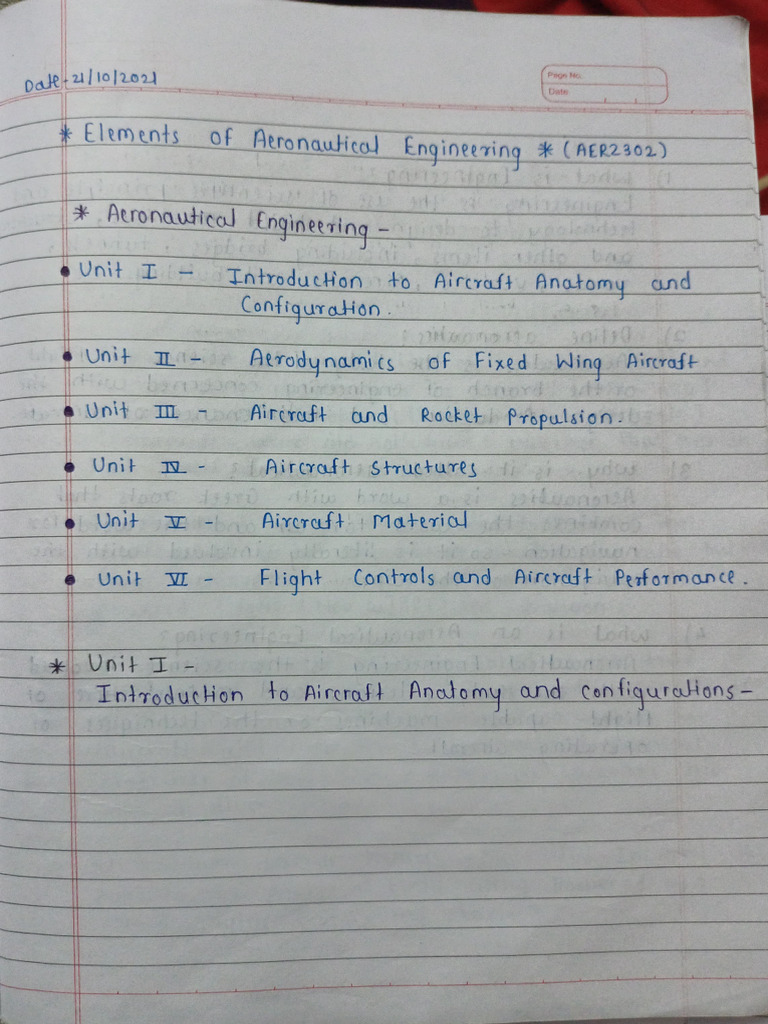 Date - 21/10/2021
Page No.
Date
* Elements of Aeronautical Engineering * (AER2302)
* Aeronautical Engineering -
• Unit I - Introduction to Aircraft Anatomy and
Configuration.
• Unit II - Aerodynamics of Fixed Wing Aircraft
• Unit III - Aircraft and Rocket Propulsion.
• Unit IV - Aircraft Structures
• Unit V - Aircraft Material
• Unit VI - Flight Controls and Aircraft Performance.
* Unit I -
Introduction to Aircraft Anatomy and configurations -